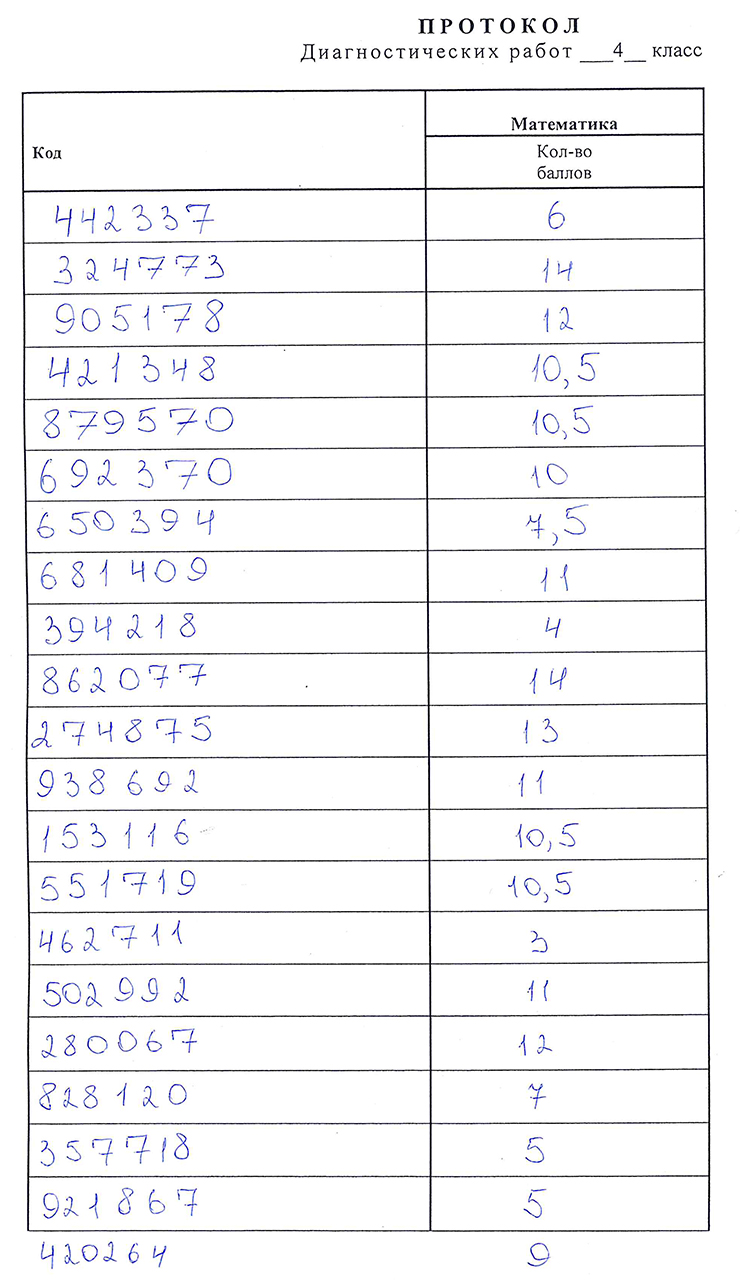 ПРОТОКОЛ
Диагностических работ ___4__ класс
Код
Математика
Кол-во
баллов
442337 6
324773 14
905178 12
421348 10,5
879570 10,5
692370 10
650394 7,5
681409 11
394218 4
862077 14
274875 13
938692 11
153116 10,5
551719 10,5
462711 3
502992 11
280067 12
828120 7
357718 5
921867 5
420264 9